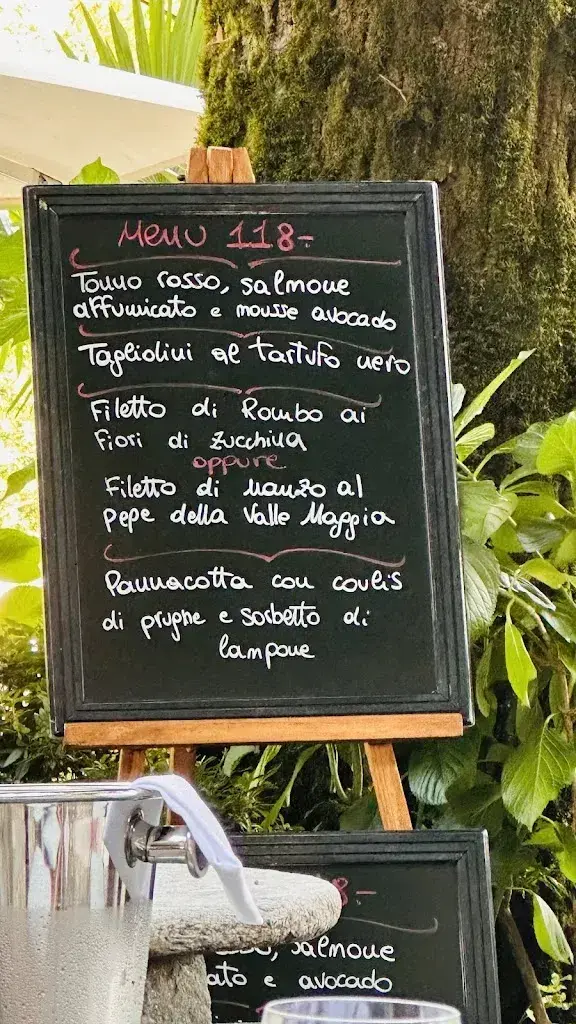 Menu 118.-
Tonno rosso, salmone
affumicato e mousse avocado
Tagliolini al tartufo nero
Filetto di Rombo ai
fiori di zucchina
oppure
Filetto di manzo al
pepe della Valle Maggia
Pannacotta con coulis
di prugne e sorbetto di
lampone
8.-
salmone
ato e avocado